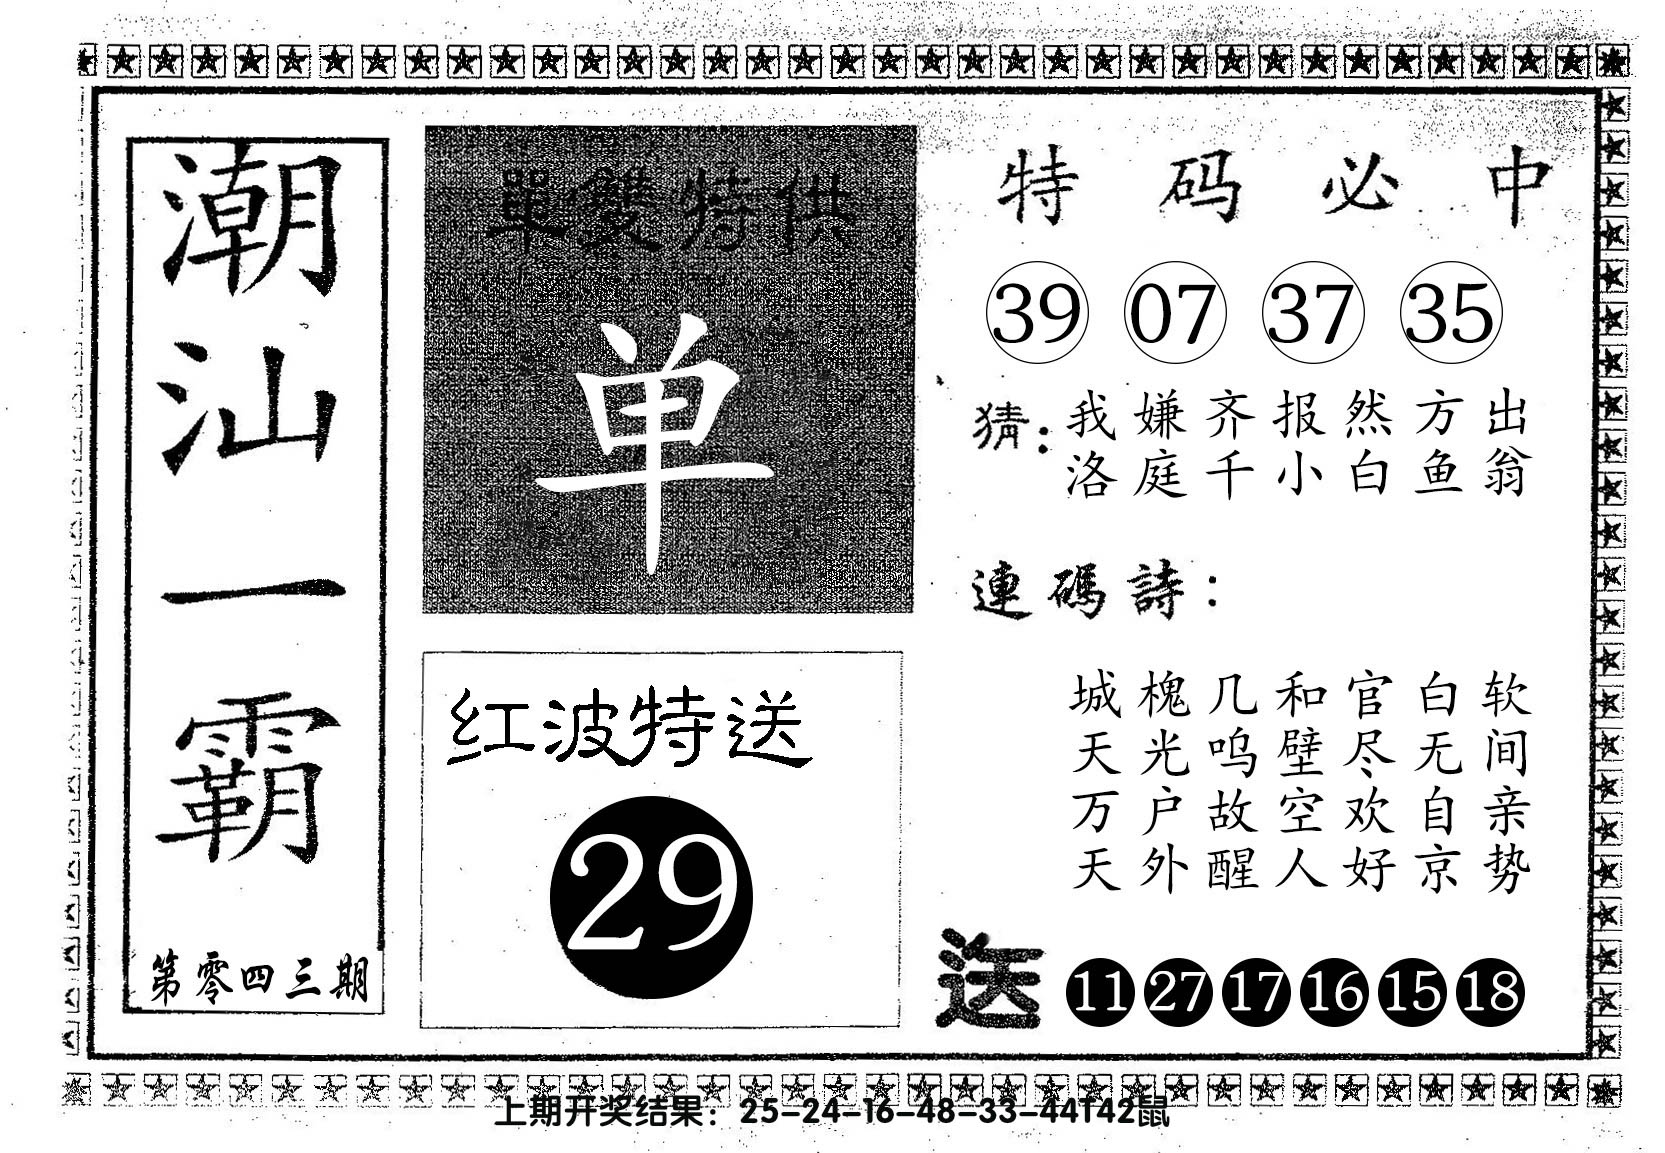 潮汕一霸
第零四三期
單雙特供
单
红波特送
29
特码必中
39 07 37 35
猜：我嫌齐报然方出
洛庭千小白鱼翁
連碼詩：
城槐几和官白软
天光呜壁尽无间
万户故空欢自亲
天外醒人好京势
送 11 27 17 16 15 18
上期开奖结果：25-24-16-48-33-44T42鼠